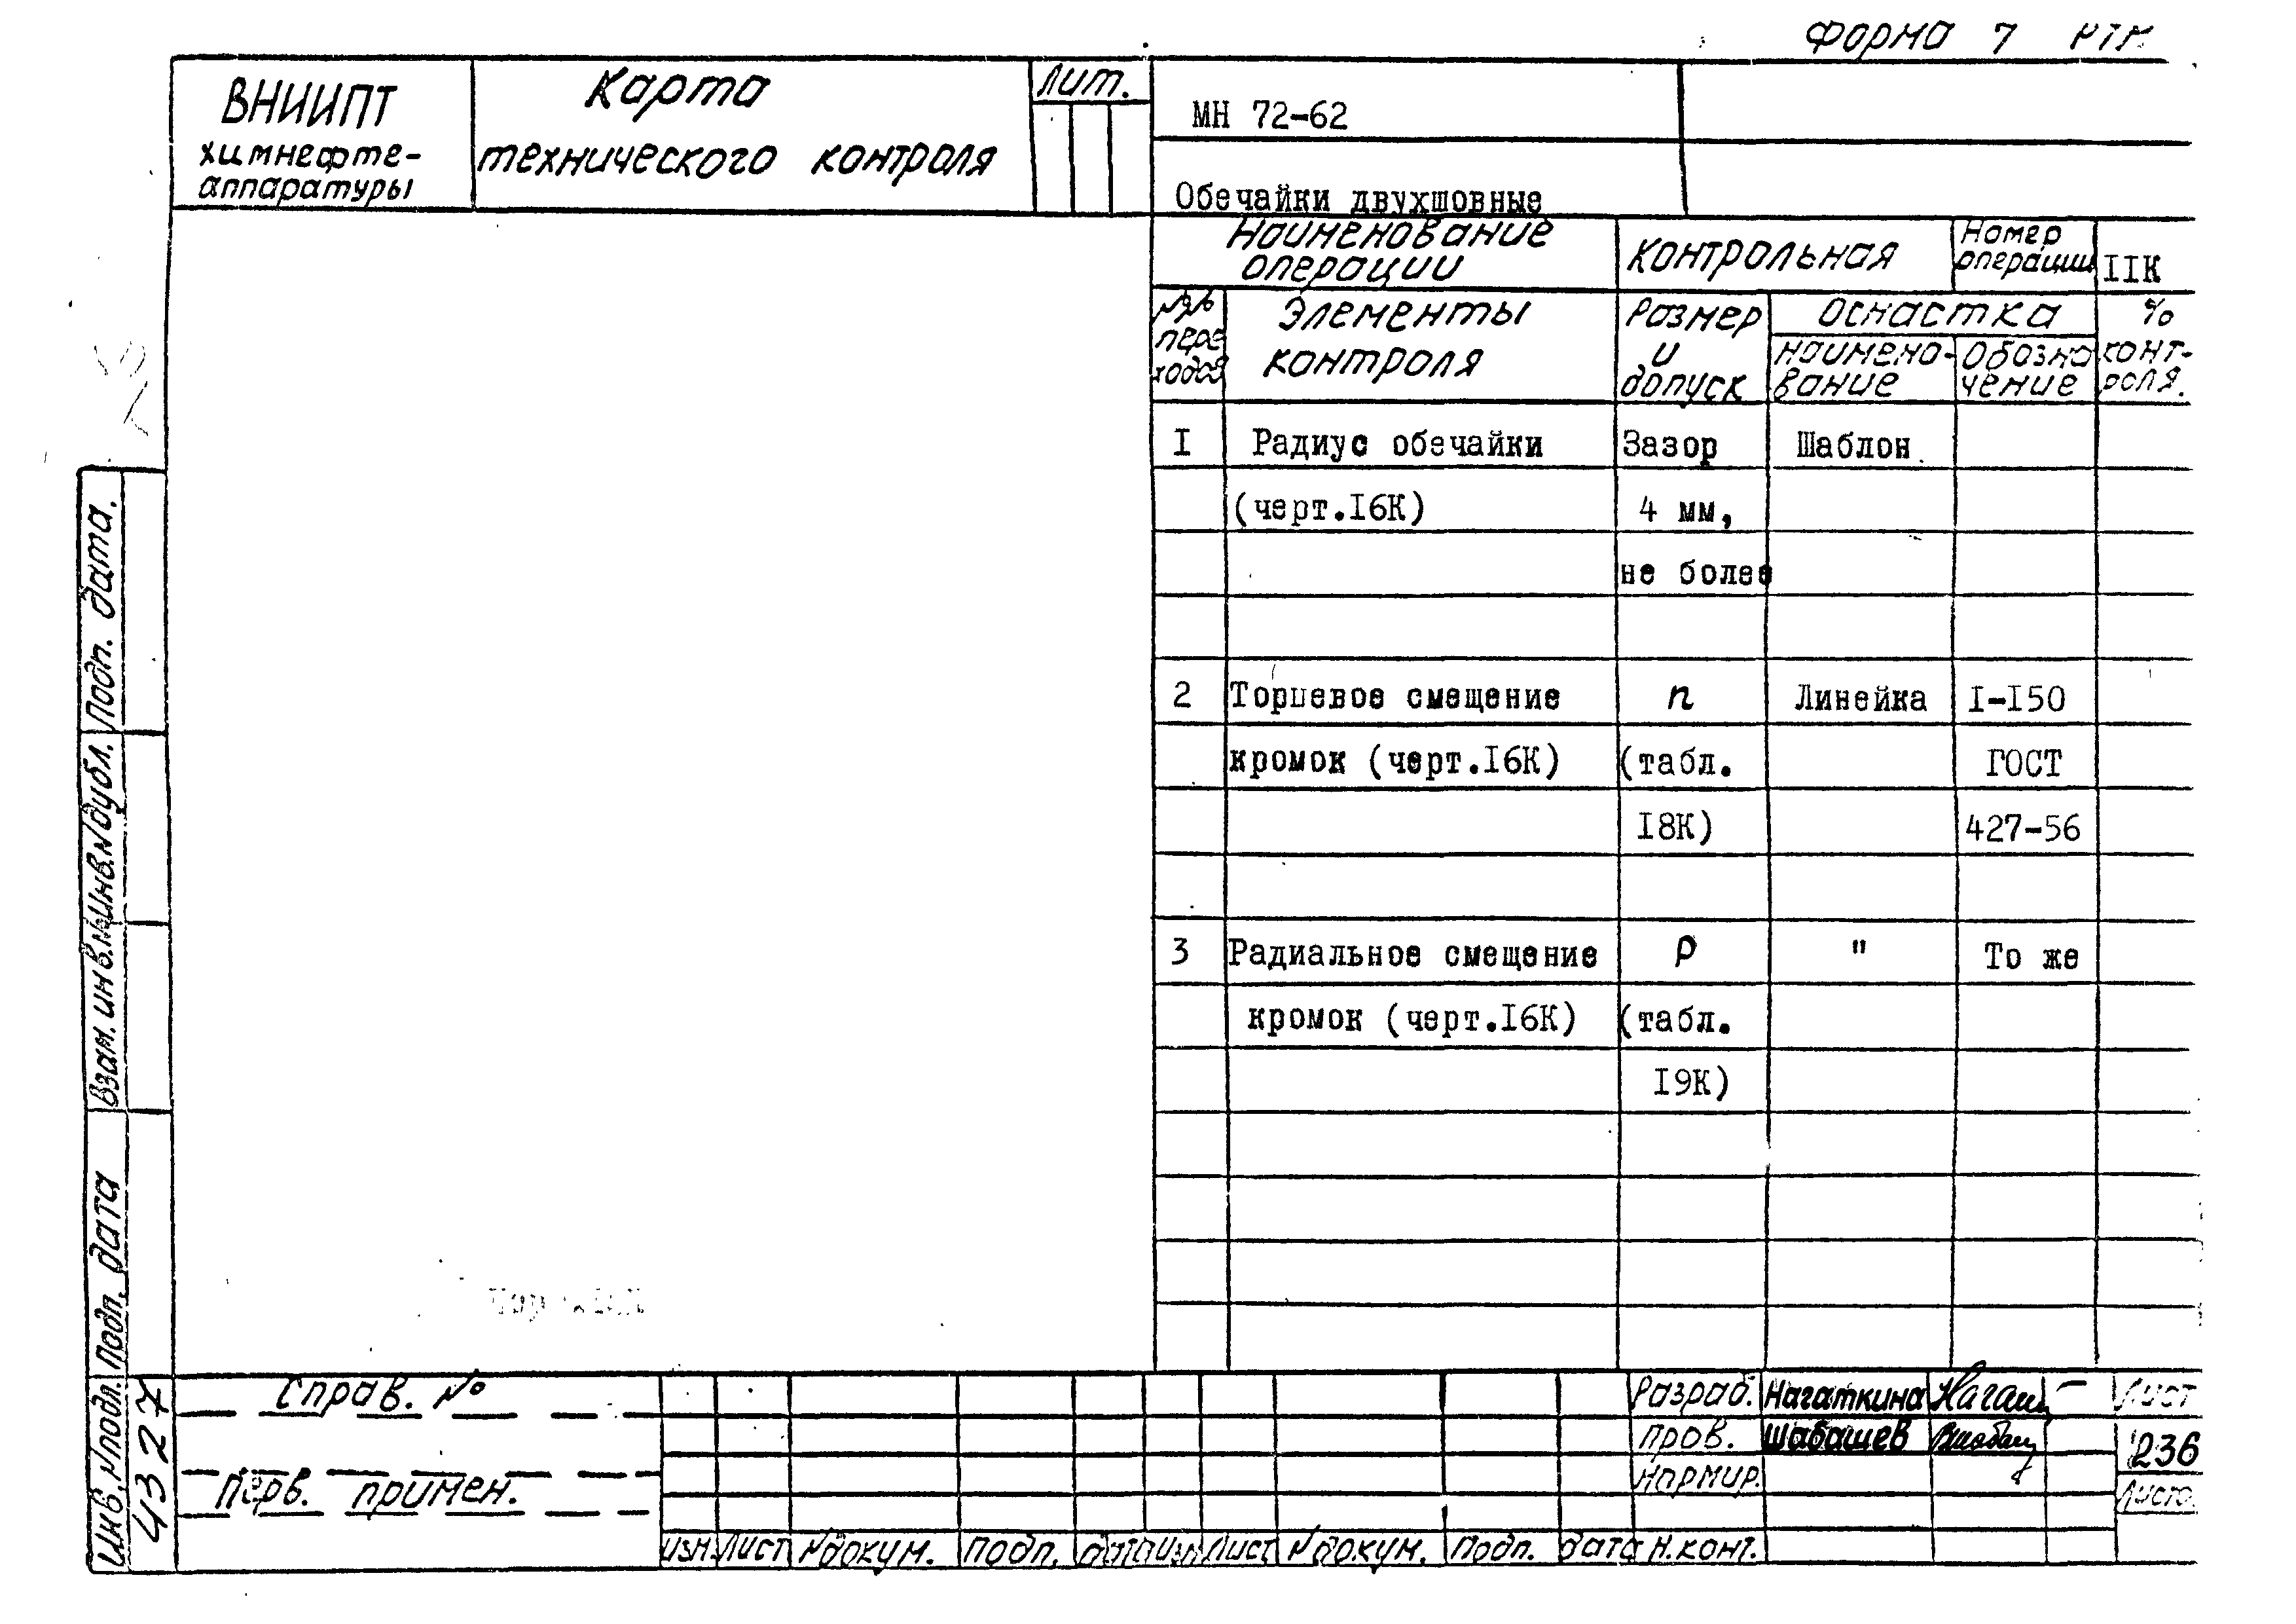 Форма 7 РТМ
ВНИИПТ
химнефте-
аппаратуры
Карта
технического контроля
Лит.
МН 72-62
Обечайки двухшовные
Наименование
операции
контрольная
Номер
операции
IIК
№№
пере
ходов
Элементы
контроля
Размер
и
допуск
Оснастка
наимено-
вание
Обозна
чение
%
конт-
роля.
I Радиус обечайки Зазор Шаблон
(черт.I6К) 4 мм,
не более
2 Торцевое смещение n Линейка I-I50
кромок (черт.I6К) (табл. ГОСТ
I8К) 427-56
3 Радиальное смещение р " То же
кромок (черт.I6К) (табл.
I9К)
Подп. дата.
Инв.№дубл.
Взам. инв.№
Подп. дата
Инв.№подл.
4327
Справ. №
Перв. примен.
Разраб. Нагаткина Лист
Пров. Шабашев 236
Нормир.
Листо.
изм. Лист №докум. Подп. дата изм Лист №докум. Подп. дата Н.конт.